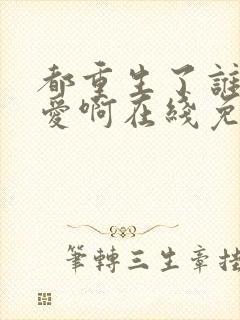 都重生了誰
愛啊在綫免
筆轉三生章掛